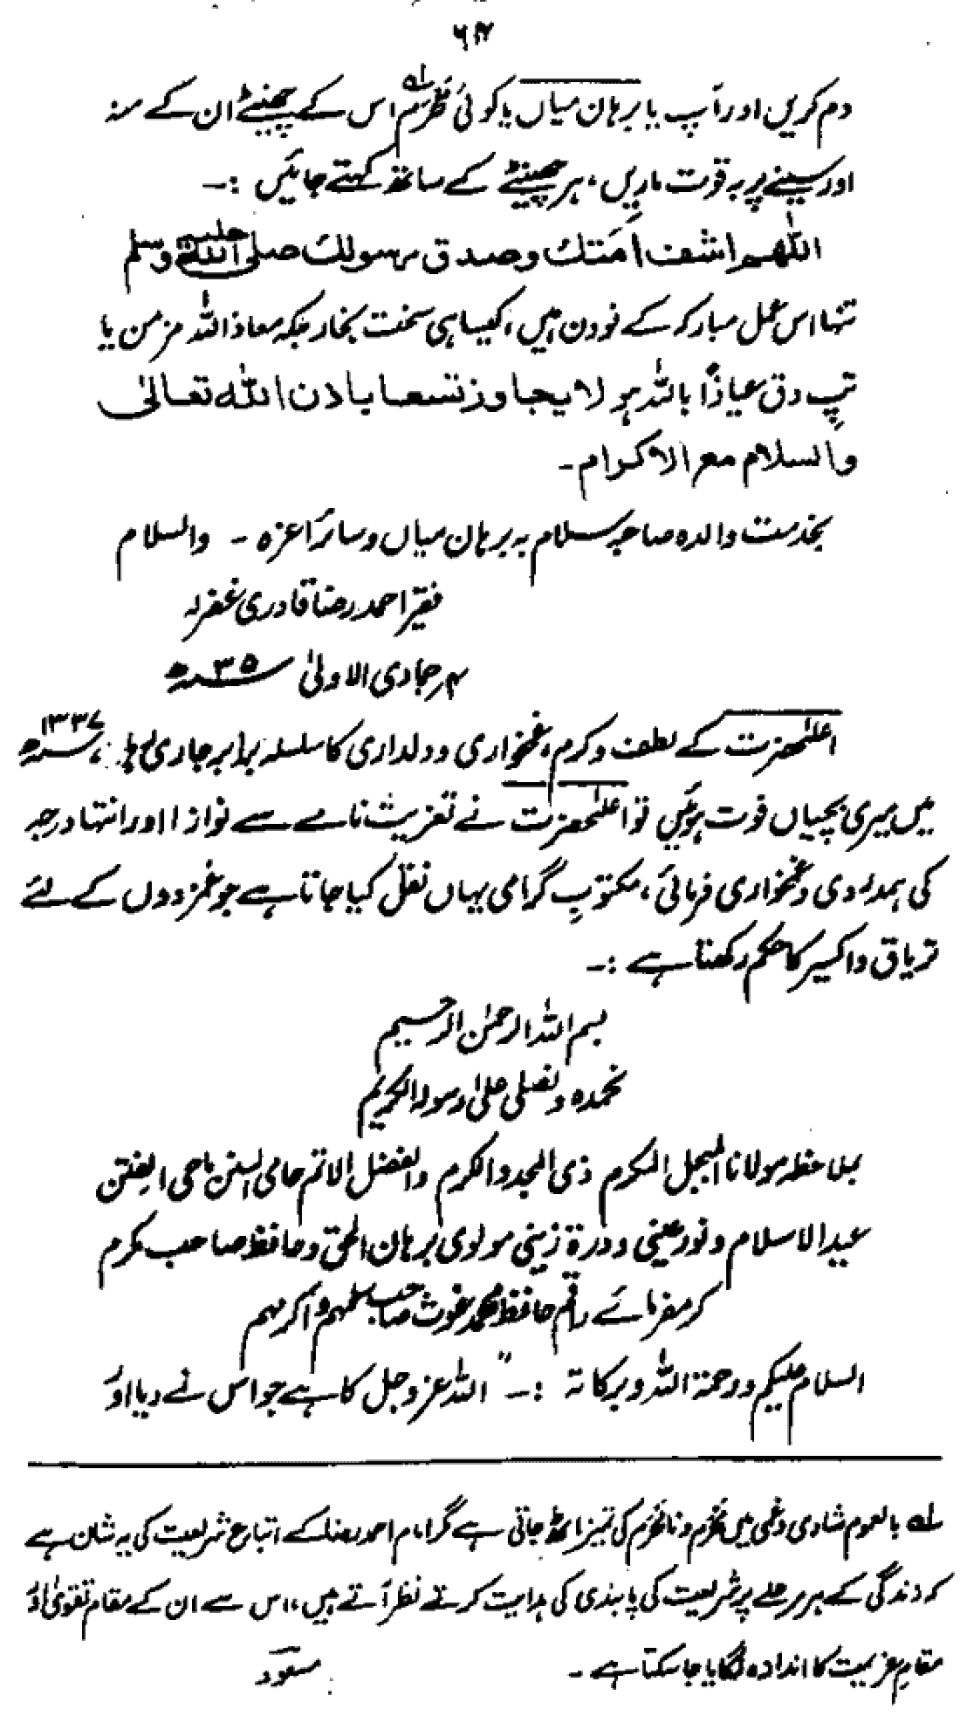 ۶۴
دم کریں اور آپ یا برہان میاں یا کوئی مَحْرَم۱؎ اس کے چھینٹے ان کے منہ
اور سینے پر بہ قوت ماریں، ہر چھینٹے کے ساتھ کہتے جائیں :۔
اللٰھم اشف امتك وصدق رسولك صلی اللہ علیہ وسلم
تنہا اس عمل مبارکہ کے نو دن ہیں، کیسا ہی سخت بخار بلکہ معاذ اللہ مزمن یا
تپِ دق عیاذًا باللہ ہو لا یجاوز تسعا باذن اللہ تعالیٰ
والسلام مع الاکرام۔
بخدمت والدہ صاحبہ سلام بہ برہان میاں و سائر اعزہ ۔ والسلام
فقیر احمد رضا قادری غفرلہ
۴؍ جمادی الاولیٰ ۳۵ھ
اعلیٰحضرت کے لطف و کرم، غمخواری و دلداری کا سلسلہ برابر جاری رہا، ۱۳۳۷ھ
میں میری بچیاں فوت ہوئیں تو اعلیٰحضرت نے تعزیت نامے سے نوازا اور انتہا درجہ
کی ہمدردی و غمخواری فرمائی، مکتوبِ گرامی یہاں نقل کیا جاتا ہے جو غمزدوں کے لئے
تریاق و اکسیر کا حکم رکھتا ہے :۔
بسم اللہ الرحمٰن الرحیم
نحمدہ و نصلی علیٰ رسولہ الکریم
بملاحظہ مولانا المبجل المکرم ذی المجد والکرم والفضل الاتم حامی السنن ماحی الفتن
عید الاسلام و نور عینی و درۃ زینی مولوی برہان الحق و حافظ صاحب مکرم
کرمفرمائے راقم حافظ محمد غوث صاحب سلمہم و اکرمہم
السلام علیکم ورحمۃ اللہ وبرکاتہ :۔ " اللہ عزوجل کا ہے جو اس نے دیا اور
۱؎ بالعموم شادی و غمی میں مَحْرَم و نامَحْرَم کی تمیز اٹھ جاتی ہے مگر امام احمد رضا کے اتباعِ شریعت کی یہ شان ہے
کہ زندگی کے ہر مرحلے پر شریعت کی پابندی کی ہدایت کرتے نظر آتے ہیں، اس سے ان کے مقام تقویٰ اور
مقام عزیمت کا اندازہ لگایا جا سکتا ہے ۔ مسعود